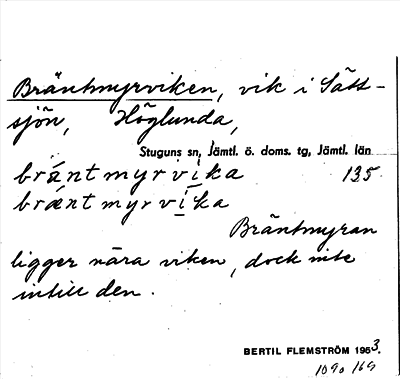 Bräntmyrviken, vik i Sätt-
sjön, Höglunda,
Stuguns sn, Jämtl. ö. doms. tg, Jämtl. län
bräntmyrvika 135
bræntmyrvika
Bräntmyran
ligger nära viken, dock inte
intill den.
BERTIL FLEMSTRÖM 1953.